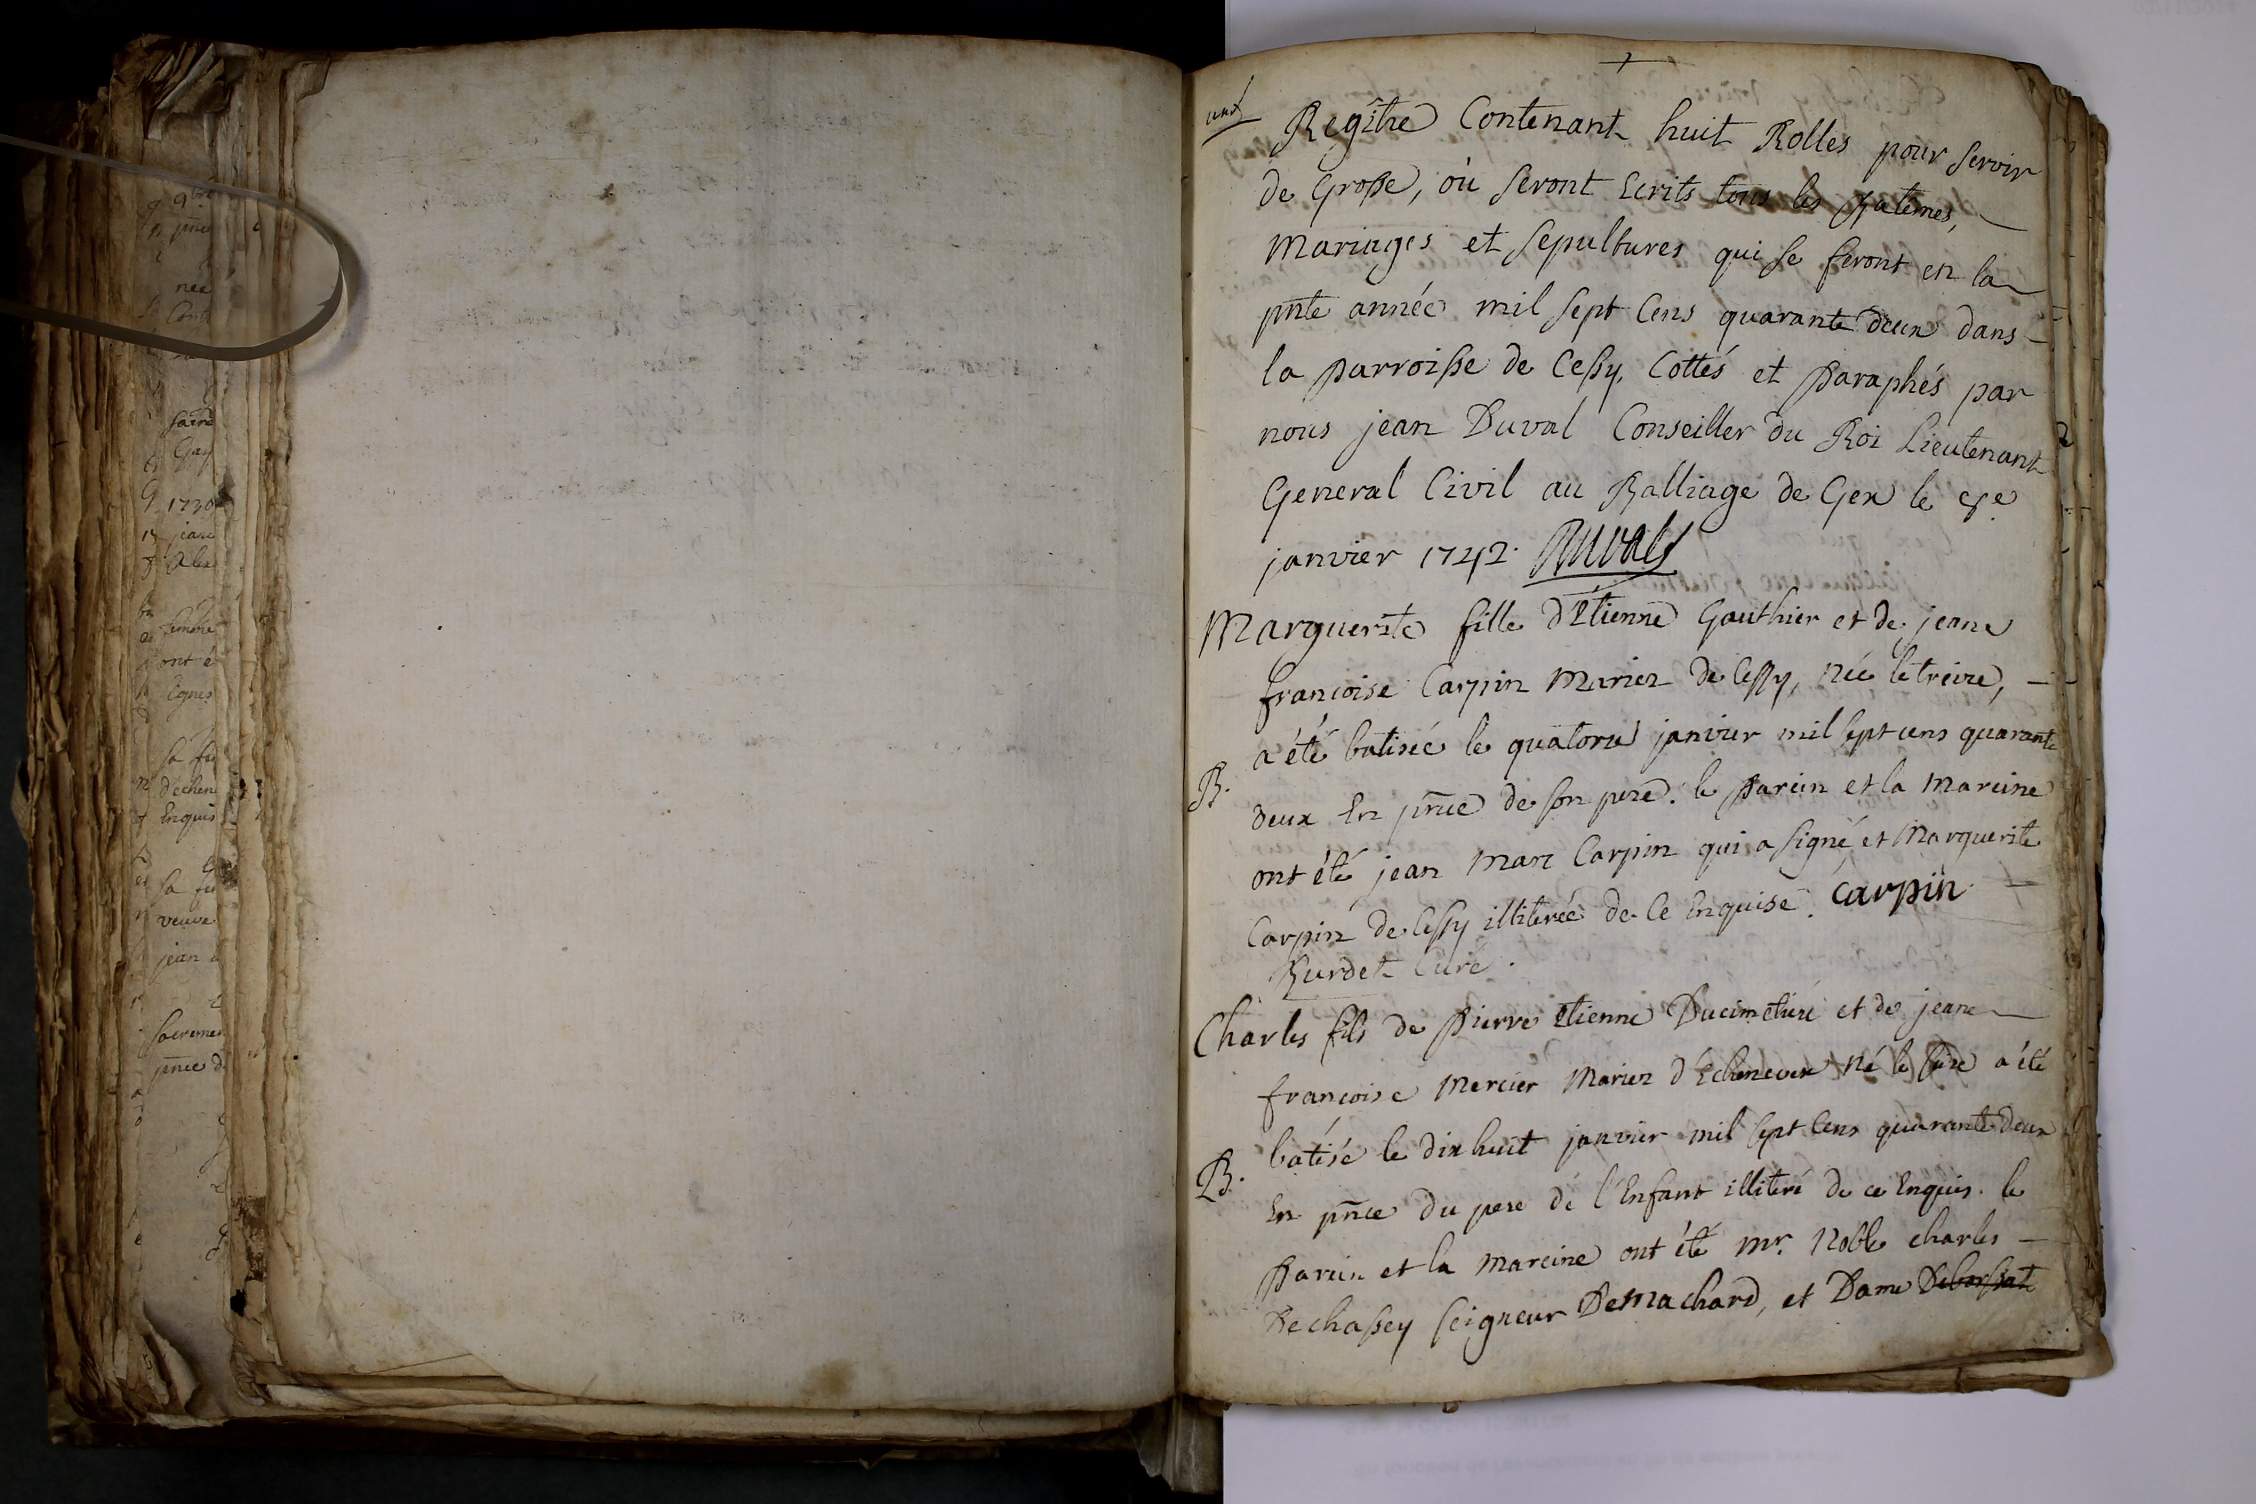 Regitre Contenant huit Rolles pour servir
de Grosse, où seront Ecrits tous les Batemes,
Mariages et sepultures qui se feront en la
pnte année mil sept Cens quarante deux dans
la Parroisse de Cessy, Cottés et Paraphés par
nous jean Duval Conseiller du Roi Lieutenant
General Civil au Balliage de Gex le
janvier 1742. Duval
Marguerite fille d'Etienne Gauthier et de jeane
francoise Carpin Mariez de Cessy, Née le treize,
a été batisée le quatorze janvier mil sept cens quarante
B.
deux En pnce de son pere. le Parein et la Mareine
ont été jean Marc Carpin qui a signé, et Marguerite
Carpin de Cessy illiterée de Ce Enquise. Carpin
Burdet Curé.
Charles fils de Pierre Etienne Ducimetiere et de jeane
francoise Mercier Mariez d'Echenevex Né le a été
batisé le dix huit janvier mil sept Cens quarante deux
B.
En pnce du pere de l'Enfant illiteré de ce Enquis. le
Parein et la Mareine ont été mr. Noble charles
Dechassey seigneur Demachard, et Dame
9bre
pnce
née
1730
jean
femme
ont é
Enquis
sa fe
veuve
jean
pnce d